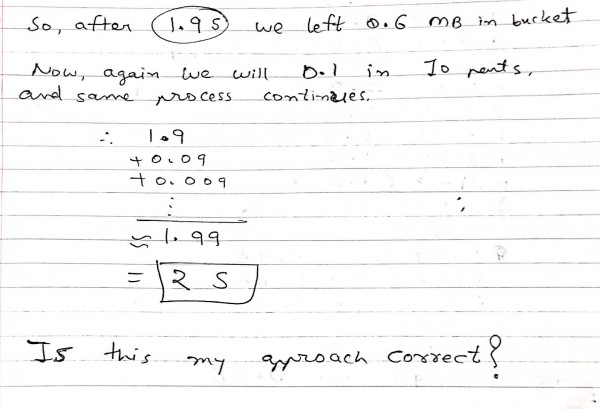 So, after 1.9s we left 0.6 MB in bucket
Now, again we will 0.1 in 10 parts,
and same process continues.
∴ 1.9
+ 0.09
+ 0.009
⋮
≈ 1.99
= 2 S
Is this my approach correct?